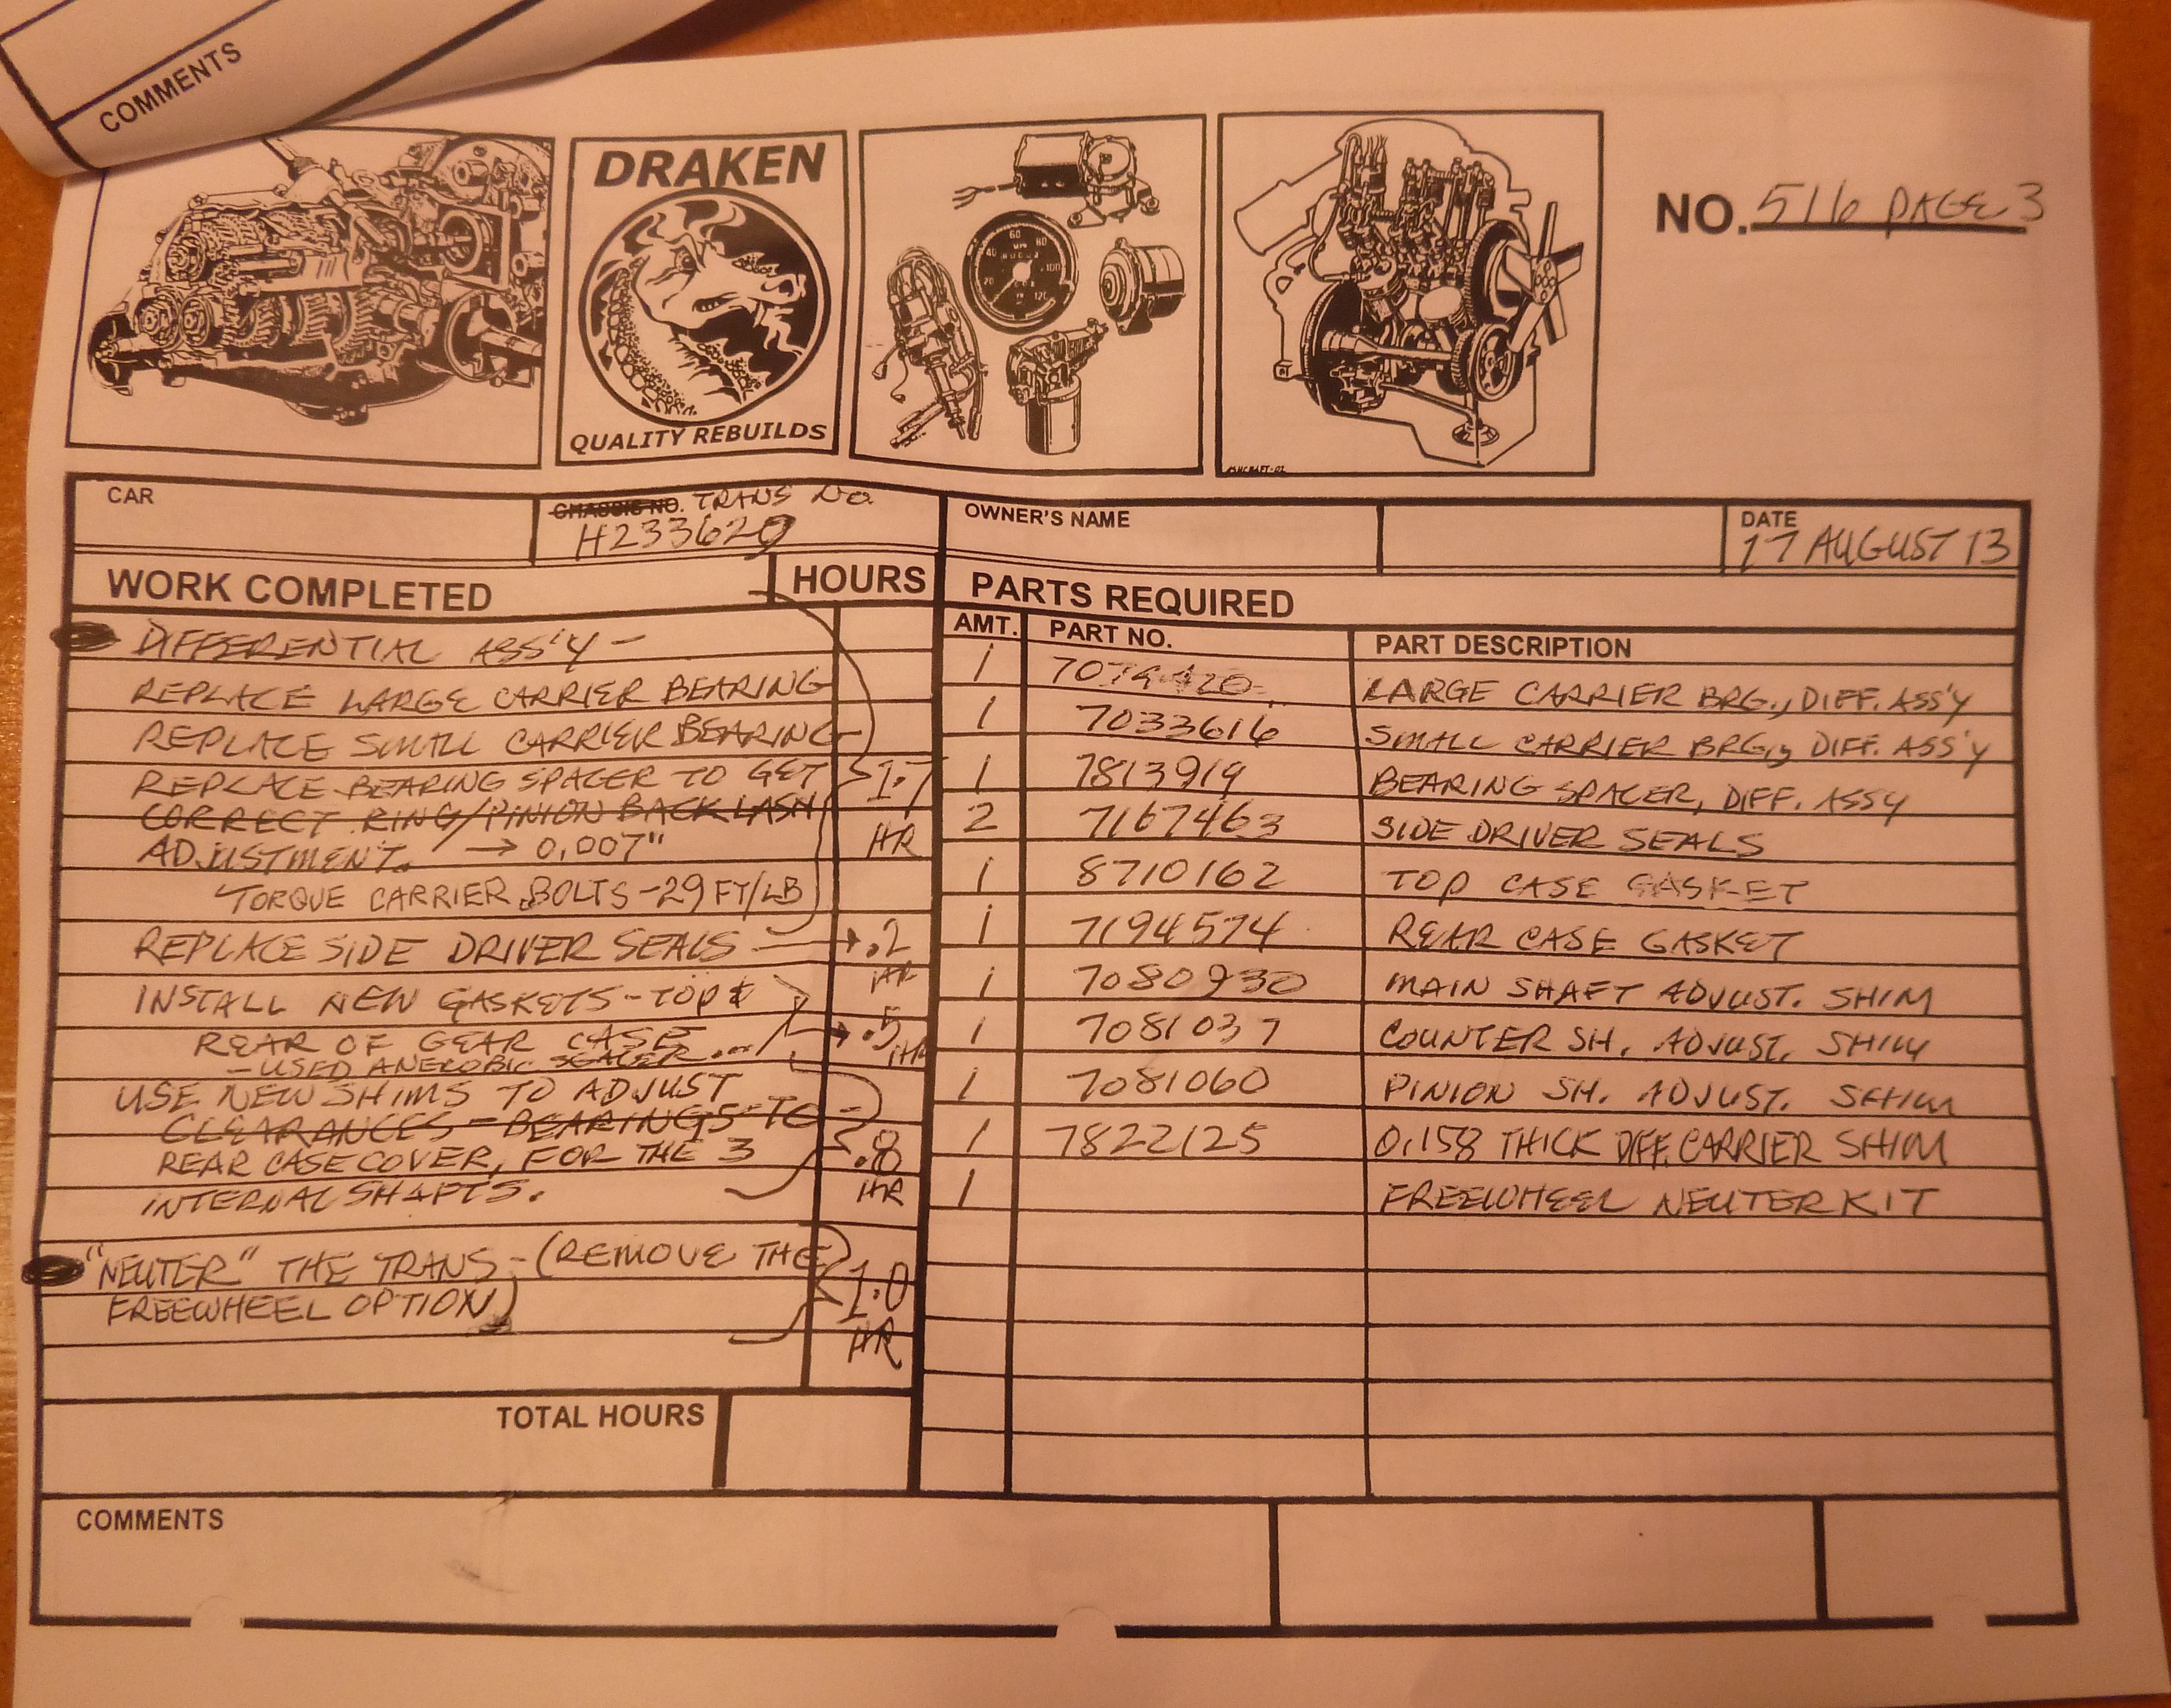 COMMENTS
DRAKEN
QUALITY REBUILDS
NO. 516 PAGE 3
CAR
CHASSIS NO. TRANS NO.
H233620
OWNER'S NAME
DATE
17 AUGUST 13
WORK COMPLETED
HOURS
DIFFERENTIAL ASS'Y -
REPLACE LARGE CARRIER BEARING
REPLACE SMALL CARRIER BEARING
REPLACE BEARING SPACER TO GET
CORRECT RING/PINION BACKLASH
ADJUSTMENT. → 0.007"
TORQUE CARRIER BOLTS - 29 FT/LB
1.7
HR
REPLACE SIDE DRIVER SEALS → .2
HR
INSTALL NEW GASKETS - TOP &
REAR OF GEAR CASE
- USED ANEROBIC SEALER...
.5
HR
USE NEW SHIMS TO ADJUST
CLEARANCES - BEARINGS TO
REAR CASE COVER, FOR THE 3
INTERNAL SHAFTS.
.8
HR
"NEUTER" THE TRANS - (REMOVE THE
FREEWHEEL OPTION)
1.0
HR
TOTAL HOURS
PARTS REQUIRED
AMT. PART NO. PART DESCRIPTION
1 LARGE CARRIER BRG., DIFF. ASS'Y
1 7033616 SMALL CARRIER BRG., DIFF. ASS'Y
1 7813919 BEARING SPACER, DIFF. ASSY
2 7167463 SIDE DRIVER SEALS
1 8710162 TOP CASE GASKET
1 7194574 REAR CASE GASKET
1 7080930 MAIN SHAFT ADJUST. SHIM
1 7081037 COUNTER SH. ADJUST. SHIM
1 7081060 PINION SH. ADJUST. SHIM
1 7822125 0.158 THICK DIFF. CARRIER SHIM
1 FREEWHEEL NEUTER KIT
COMMENTS